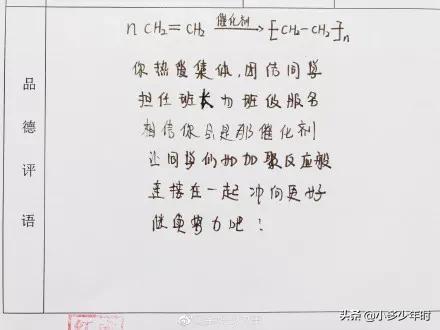 n CH₂=CH₂ 催化剂→ [CH₂-CH₂]n
品德评语
你热爱集体,团结同学
担任班长为班级服务
相信你会是那催化剂
让同学们如加聚反应般
连接在一起 冲向更好
继续努力吧!
头条@小多少年时